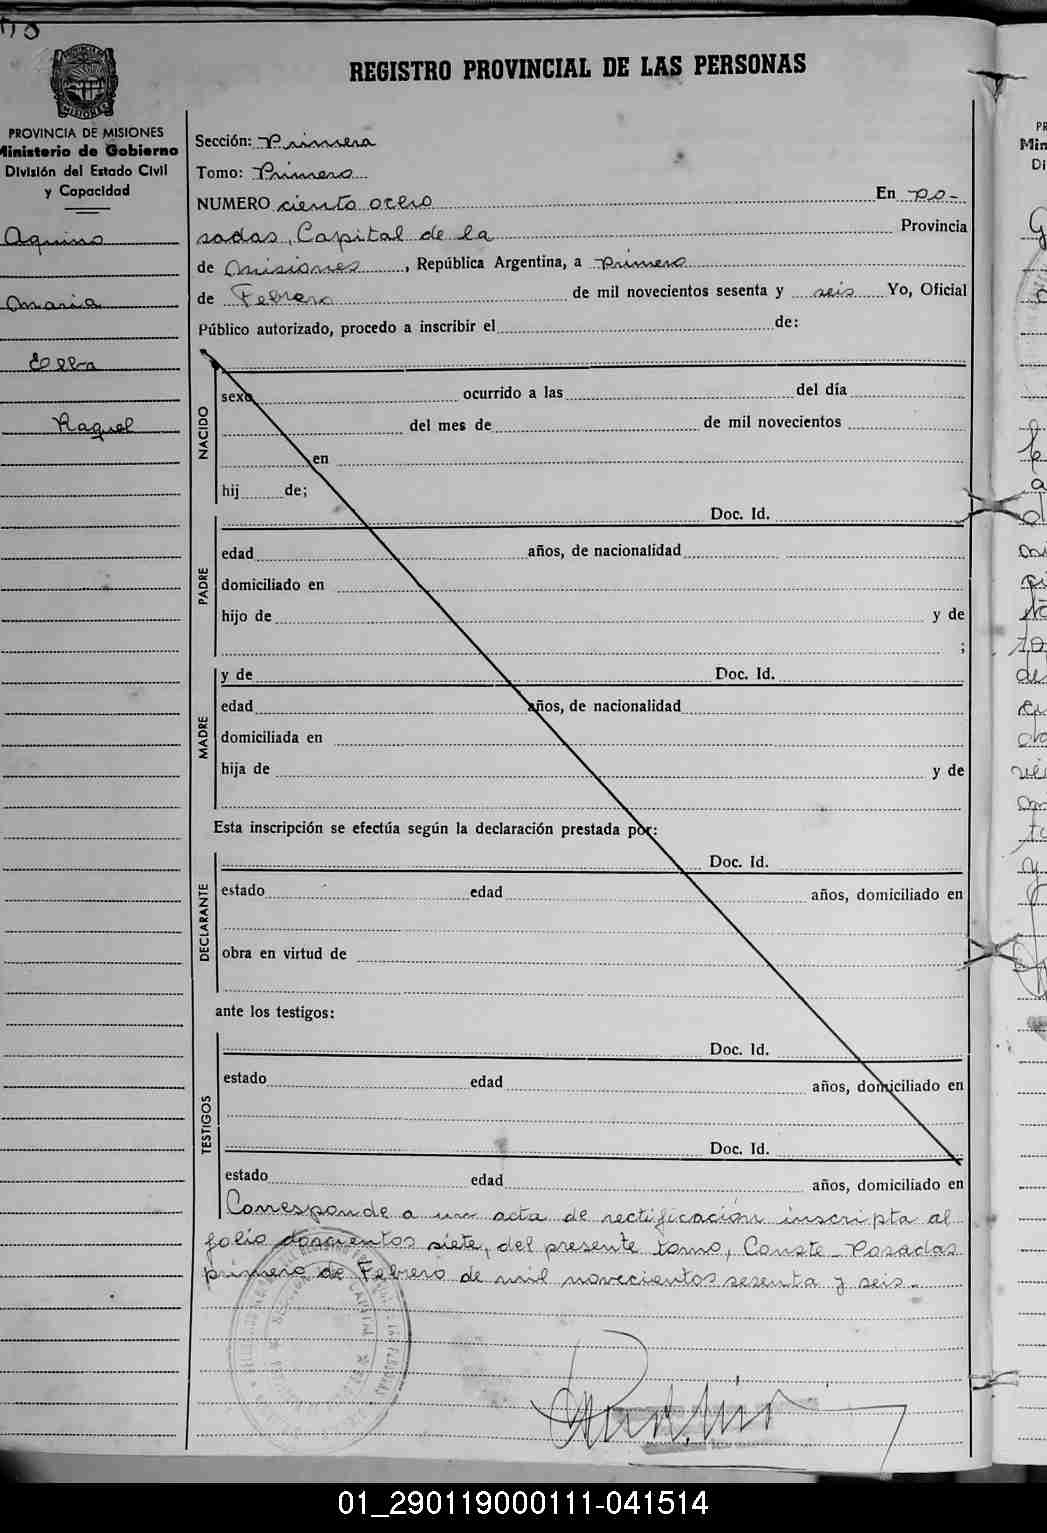 REGISTRO PROVINCIAL DE LAS PERSONAS
PROVINCIA DE MISIONES
Ministerio de Gobierno
División del Estado Civil
y Capacidad
Aquino
Maria
Elba
Raquel
Sección: Primera
Tomo: Primero
NUMERO ciento ocero En Po-
sadas, Capital de la Provincia
de Misiones, República Argentina, a primero
de Febrero de mil novecientos sesenta y seis Yo, Oficial
Público autorizado, procedo a inscribir el de:
NACIDO
sexo ocurrido a las del día
del mes de de mil novecientos
en
hij de;
PADRE
Doc. Id.
edad años, de nacionalidad
domiciliado en
hijo de y de
;
MADRE
y de Doc. Id.
edad años, de nacionalidad
domiciliada en
hija de y de
Esta inscripción se efectúa según la declaración prestada por:
DECLARANTE
Doc. Id.
estado edad años, domiciliado en
obra en virtud de
ante los testigos:
TESTIGOS
Doc. Id.
estado edad años, domiciliado en
Doc. Id.
estado edad años, domiciliado en
Corresponde a un acta de rectificación inscripta al
folio doscientos siete, del presente tomo, Conste. Posadas
primero de Febrero de mil novecientos sesenta y seis.
01_290119000111-041514